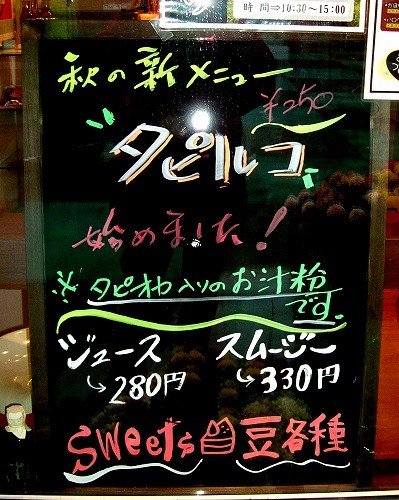 時間⇒10:30~15:00
秋の新メニュー
¥250
タピルコ
始めました!
※タピオカ入りのお汁粉
です。
ジュース スムージー
↳280円 ↳330円
sweets 豆各種